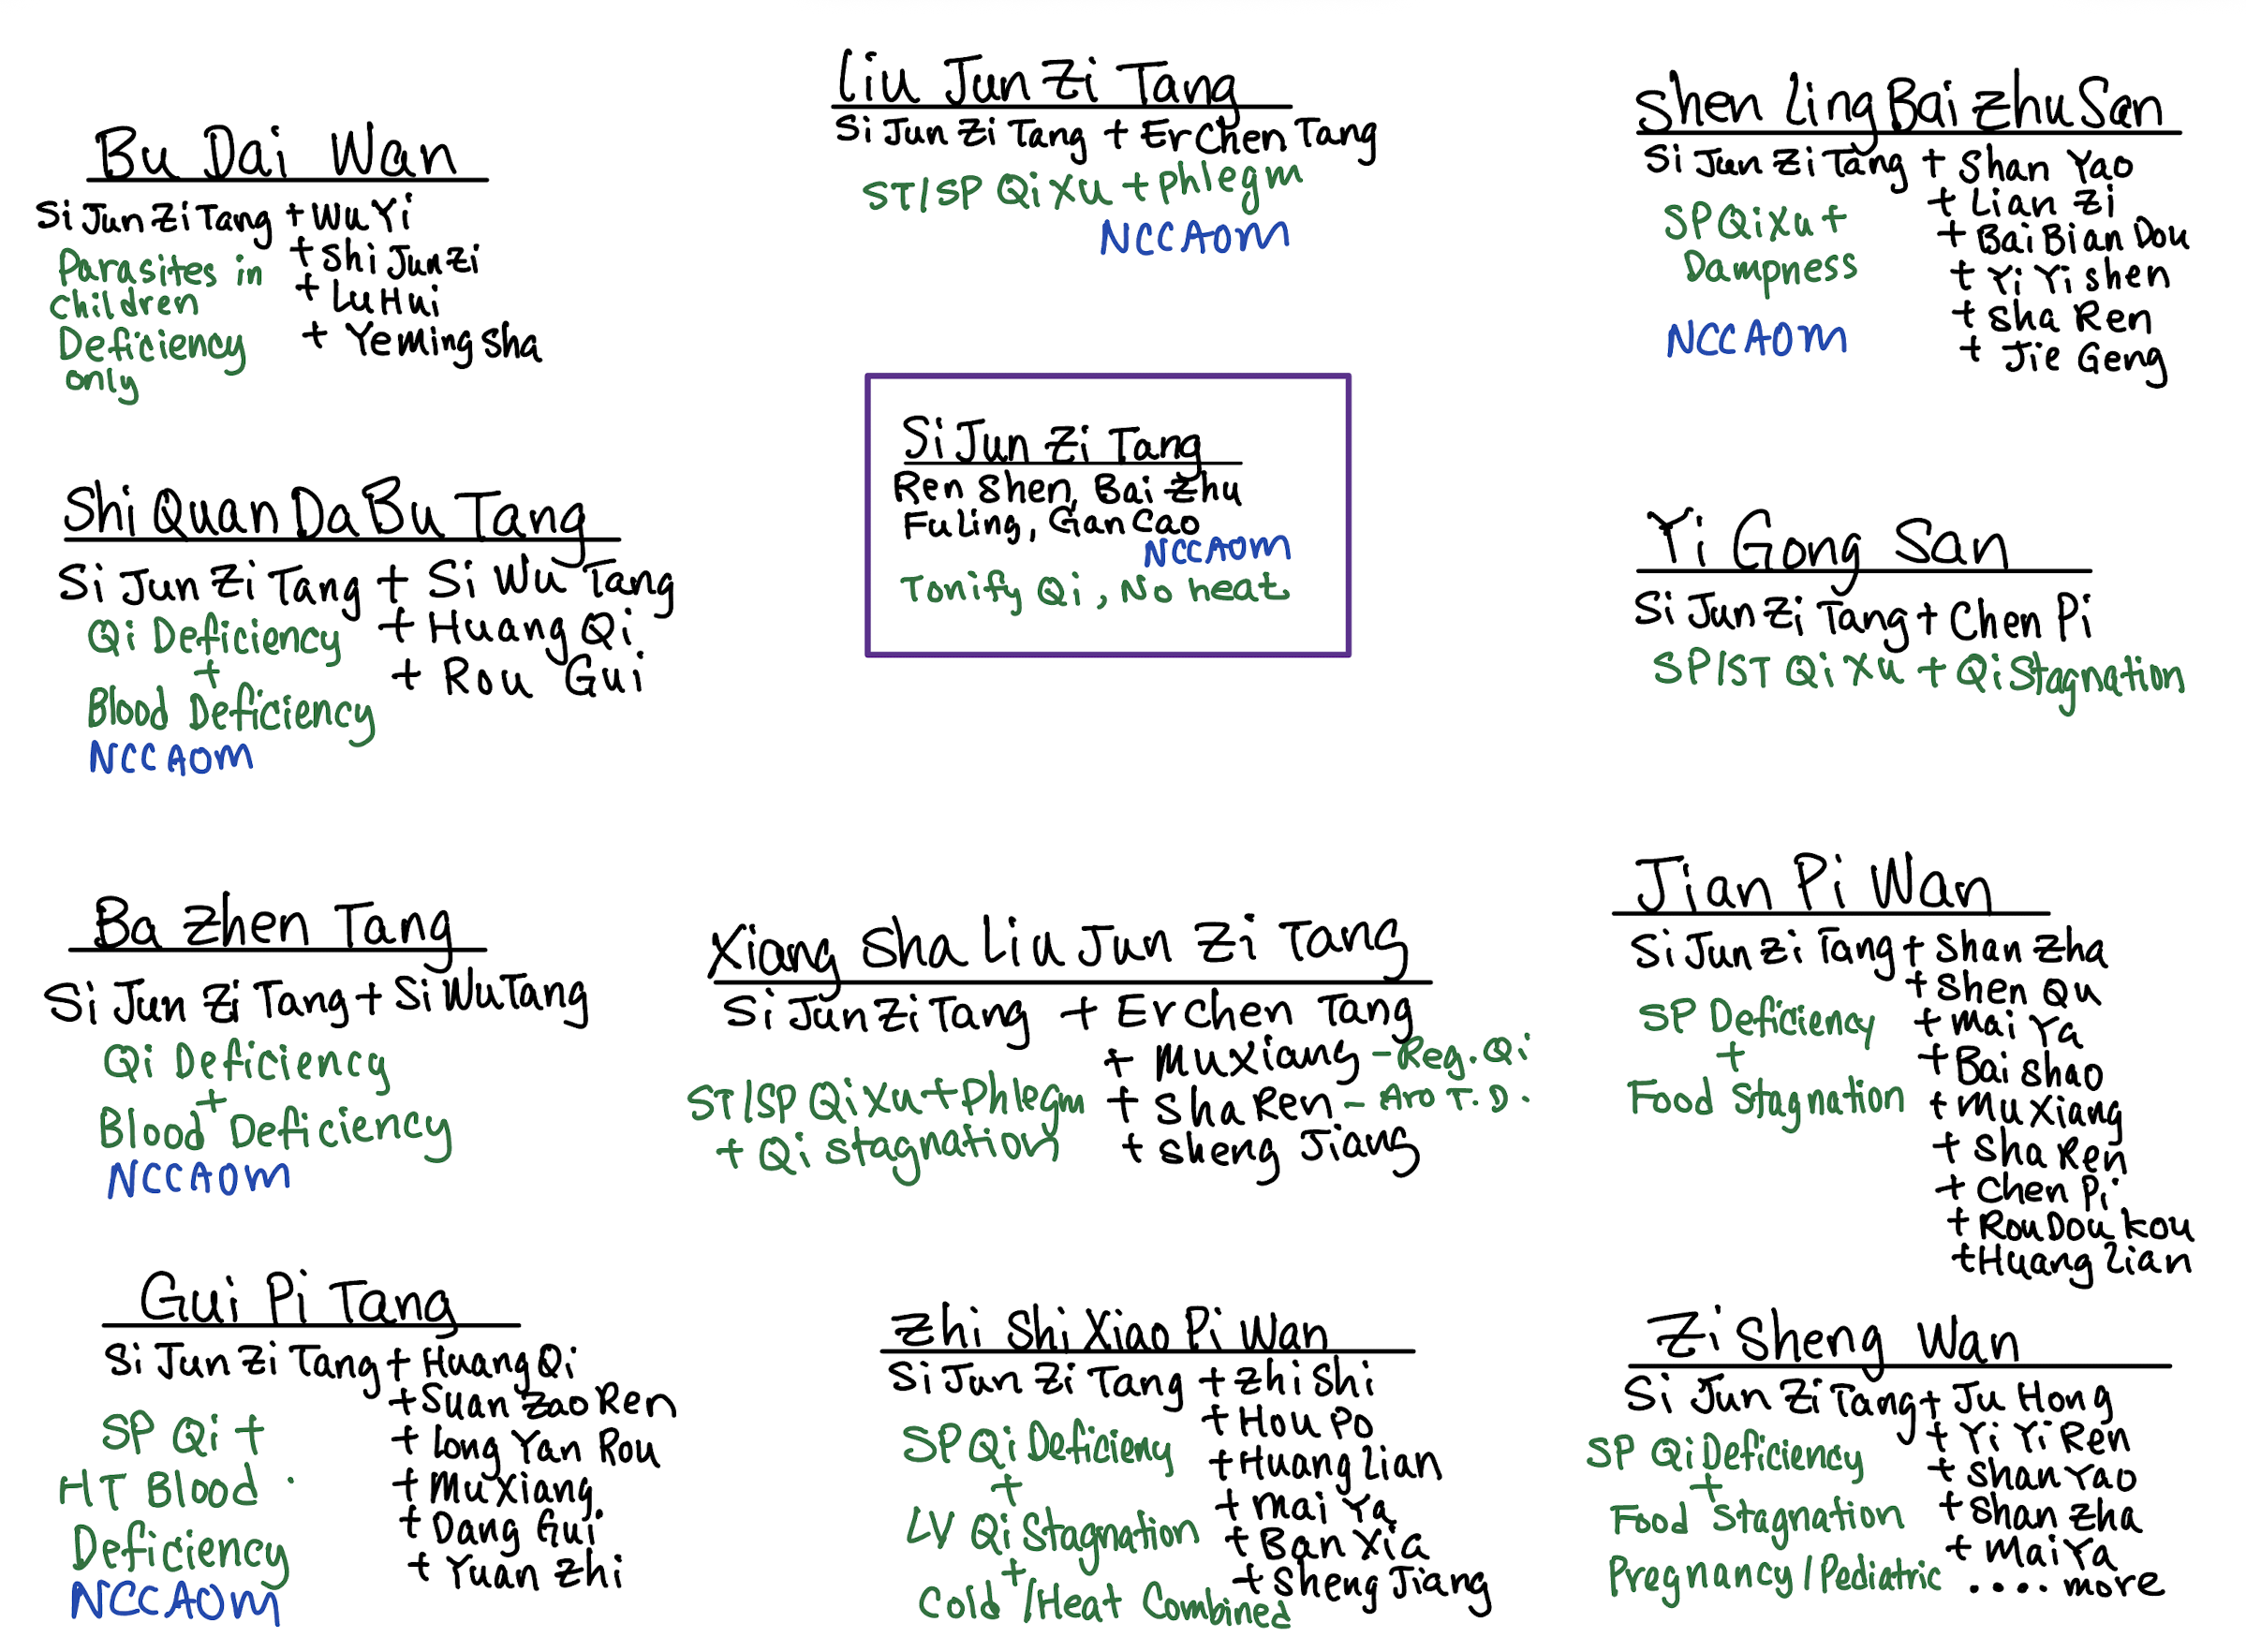 Bu Dai Wan
Si Jun Zi Tang + Wu Yi
+ Shi Jun Zi
+ Lu Hui
+ Ye Ming Sha
Parasites in
children
Deficiency
only
Liu Jun Zi Tang
Si Jun Zi Tang + Er Chen Tang
ST/SP Qi Xu + Phlegm
NCCAOM
Shen Ling Bai Zhu San
Si Jun Zi Tang + Shan Yao
+ Lian Zi
+ Bai Bian Dou
+ Yi Yi shen
+ Sha Ren
+ Jie Geng
SP Qi Xu +
Dampness
NCCAOM
Si Jun Zi Tang
Ren Shen, Bai Zhu
Fu Ling, Gan Cao
NCCAOM
Tonify Qi, No heat
Shi Quan Da Bu Tang
Si Jun Zi Tang + Si Wu Tang
+ Huang Qi
+ Rou Gui
Qi Deficiency
+
Blood Deficiency
NCCAOM
Yi Gong San
Si Jun Zi Tang + Chen Pi
SP/ST Qi Xu + Qi Stagnation
Ba Zhen Tang
Si Jun Zi Tang + Si Wu Tang
Qi Deficiency
+
Blood Deficiency
NCCAOM
Xiang Sha Liu Jun Zi Tang
Si Jun Zi Tang + Er Chen Tang
+ Mu Xiang - Reg. Qi
+ Sha Ren - Aro T. D.
+ Sheng Jiang
ST/SP Qi Xu + Phlegm
+ Qi stagnation
Jian Pi Wan
Si Jun Zi Tang + Shan Zha
+ Shen Qu
+ Mai Ya
+ Bai Shao
+ Mu Xiang
+ Sha Ren
+ Chen Pi
+ Rou Dou Kou
+ Huang Lian
SP Deficiency
+
Food Stagnation
Gui Pi Tang
Si Jun Zi Tang + Huang Qi
+ Suan Zao Ren
+ Long Yan Rou
+ Mu Xiang
+ Dang Gui
+ Yuan Zhi
SP Qi +
HT Blood
Deficiency
NCCAOM
Zhi Shi Xiao Pi Wan
Si Jun Zi Tang + Zhi Shi
+ Hou Po
+ Huang Lian
+ Mai Ya
+ Ban Xia
+ Sheng Jiang
SP Qi Deficieny
+
LV Qi Stagnation
+
Cold/Heat Combined
Zi Sheng Wan
Si Jun Zi Tang + Ju Hong
+ Yi Yi Ren
+ Shan Yao
+ Shan Zha
+ Mai Ya
.... more
SP Qi Deficiency
+
Food Stagnation
Pregnancy/Pediatric